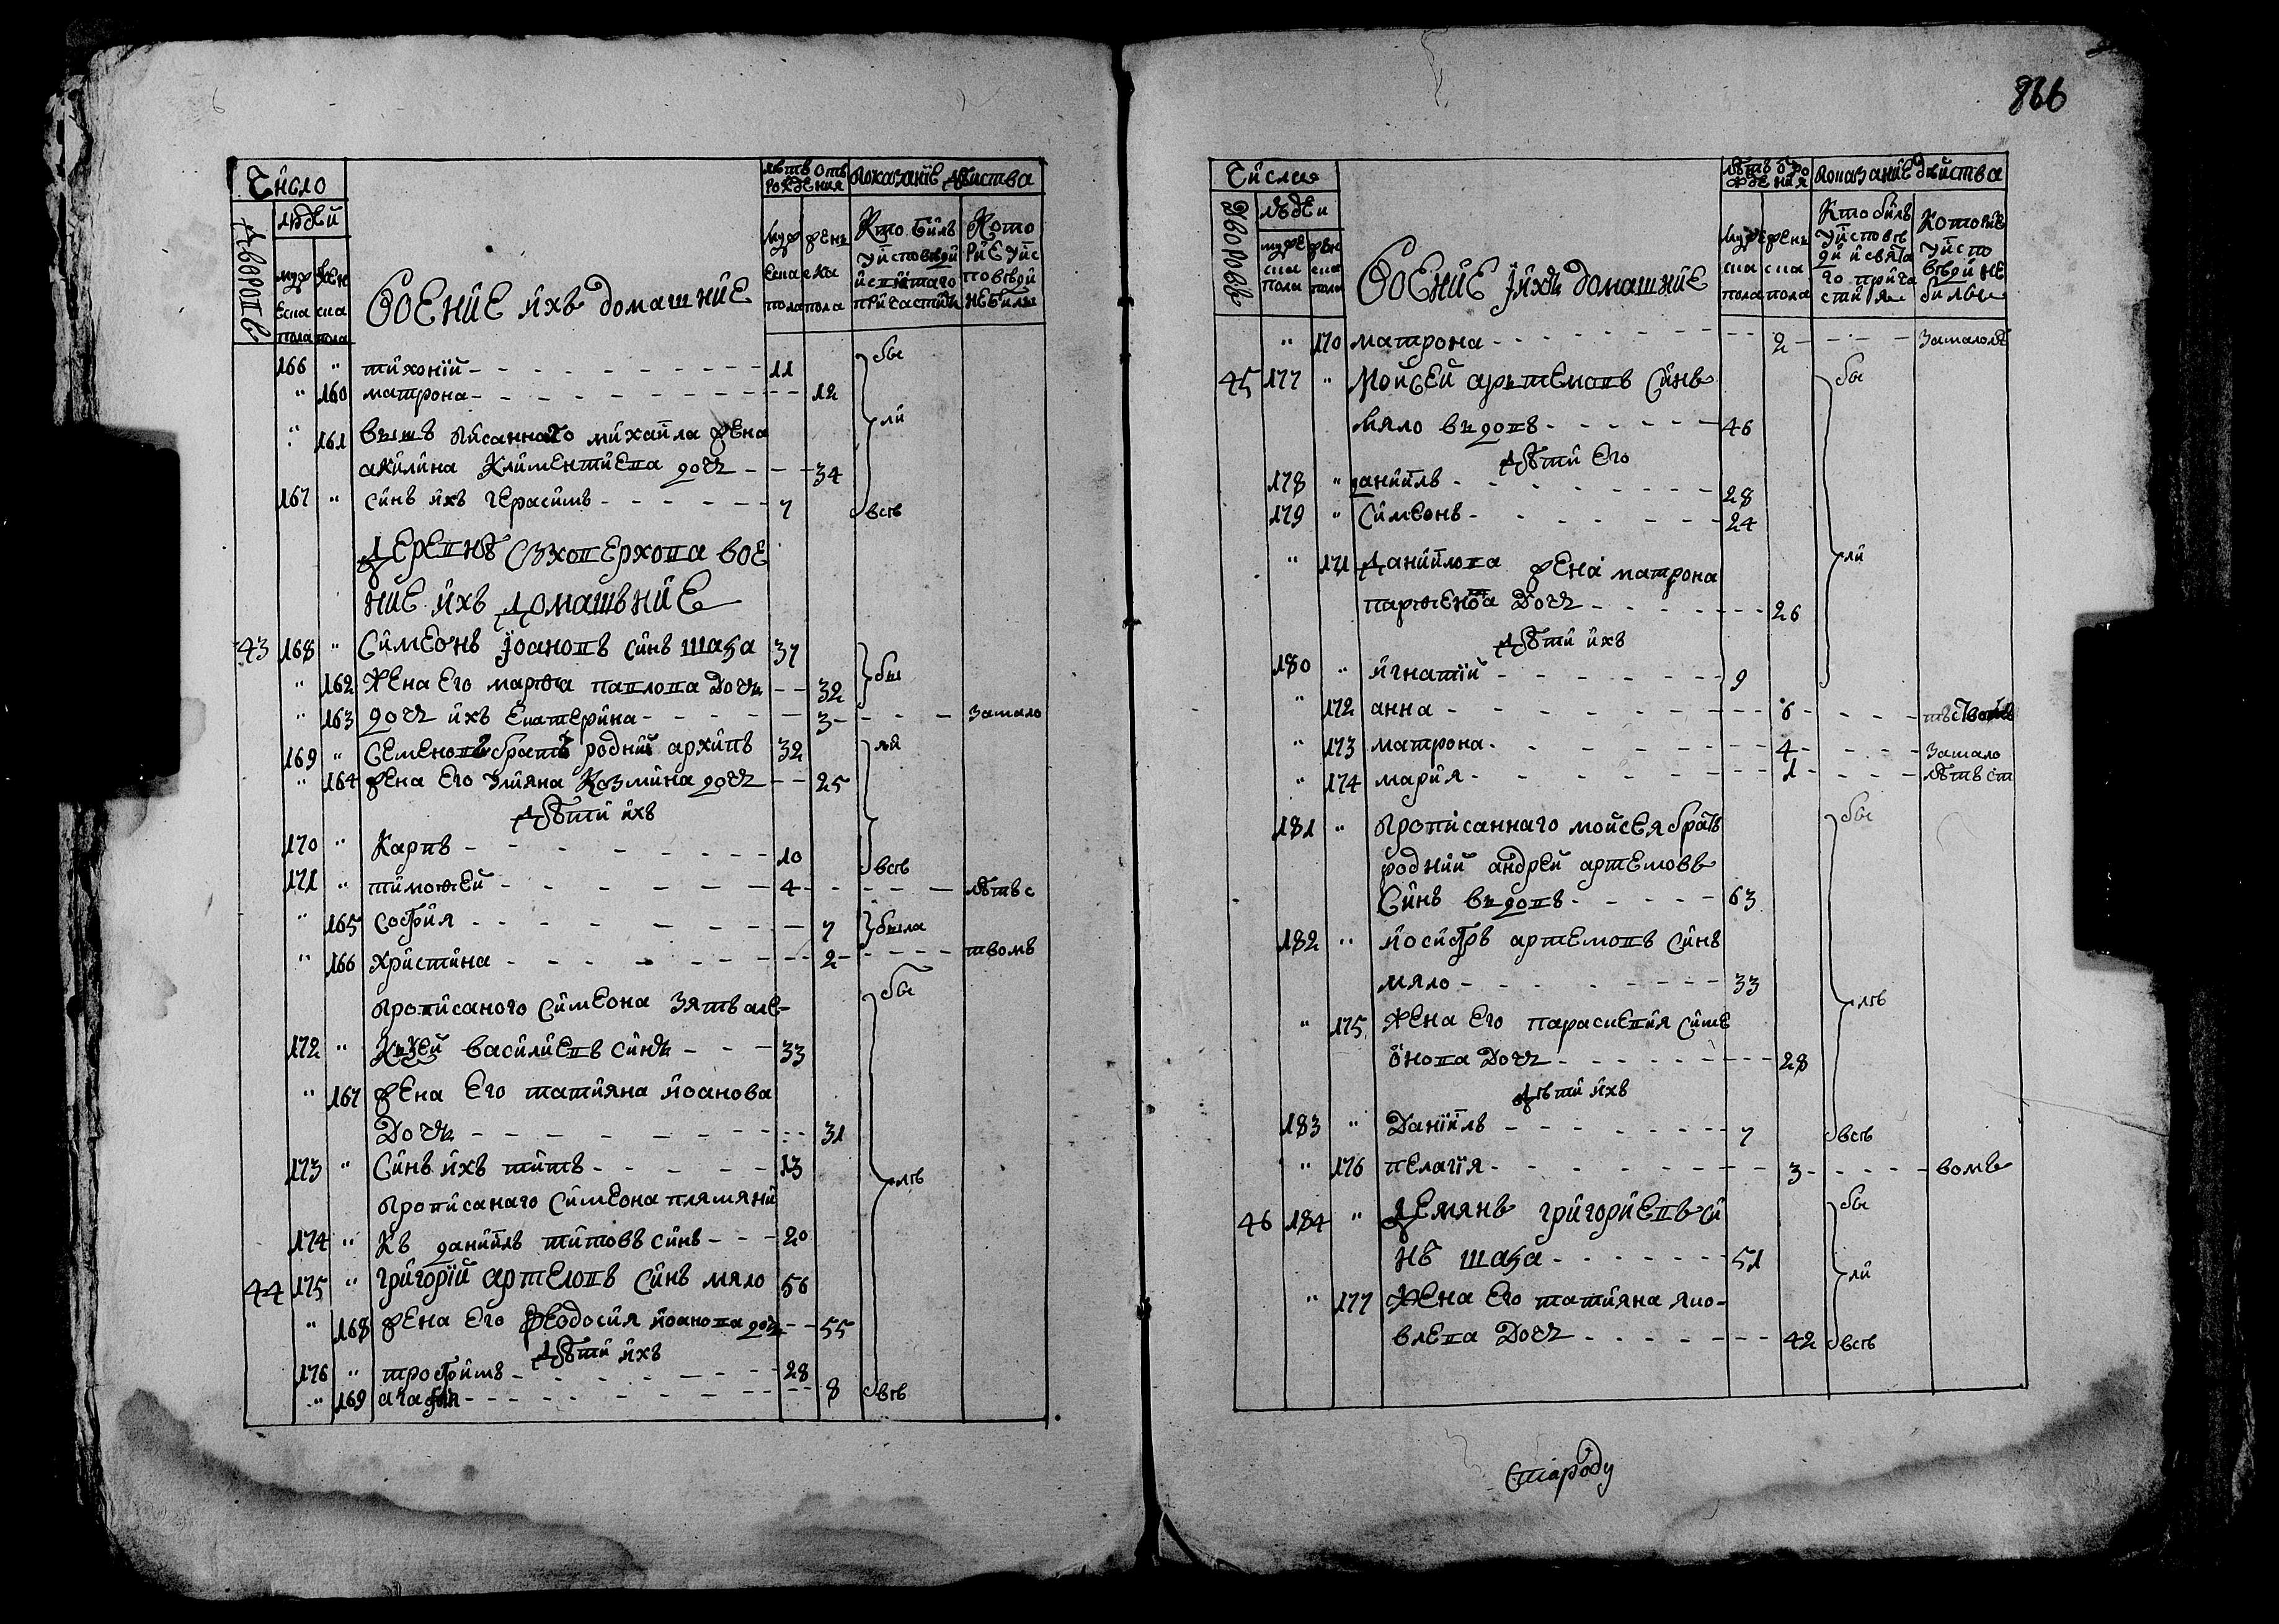 866
Число
лѣтъ отъ рожденія
показаніе дѣиства
дворовъ
людей
мужеска пола
женска пола
Воение ихъ домашние
мужеска пола
женска пола
Кто билъ у исповѣди и с҃тято причастия
Которие у исповѣди не били
166 " тихоній - 11 бы
" 160 матрона - 12
" 161 выше писаннаго михаила жена ли
акилина Климентиева дочь - 34
167 " синъ ихъ герасимъ - 7 всѣ
Воение ихъ домашьние
43 168 " Симеонъ іоановъ синъ шаба 37
" 162 жена его марѳа павлова дочь - 32 бы
" 163 дочь ихъ екатерина - 3 - замало
169 " Семеновъ братъ родній архипъ 32 ли
" 164 жена его улияна Козмина дочь - 25
дѣти ихъ
170 " Карпъ - 10 всѣ
171 " тимоѳей - 4 - лѣтъс
" 165 софия - 7 была
" 166 христина - 2 - твомъ
прописаного Симеона зять але- бы
172 " Кѣей василиевъ синъ - 33
" 167 жена его татияна иоанова
дочь - 31
173 " Синъ ихъ титъ - 13 лѣ
прописанаго Симеона плямяни
174 " Къ даниилъ титовъ синъ - 20
44 175 " григорій артемовъ синъ мяло 56
" 168 жена его феодосия иоанова дочь - 55
дѣти ихъ
176 " трофимъ - 28
" 169 агафия - 8 всѣ
Числа
лѣтъ о рожденія
показаніе дѣйства
дворовъ
людеи
мужеска пола
женска пола
Воение іихъ домашние
мужеска пола
женска пола
Кто билъ у исповѣди и святаго причастия
Которие у исповѣди не были
" 170 матрона - 2 - замалолѣ
45 177 " Мойсей артемовъ синъ бы
мяло вдовъ - 46
дѣти его
178 " даниилъ - 28
179 " Симеонъ - 24
" 171 даниилова жена матрона ли
парѳенова дочь - 26
дѣти ихъ
180 " игнатій - 9
" 172 анна - 6 -
" 173 матрона - 4 - замало
" 174 мария - 1 - лѣтъст
181 " прописаннаго мойсея братъ бы
родній андрей артемовъ
Синъ вдовъ - 63
182 " йосифъ артемовъ синъ
мяло - 33 лѣ
" 175 жена его параскевия симе
онова дочь - 28
дѣти ихъ
183 " Даніилъ - 7 всѣ
" 176 пелагія - 3 - вомъ
46 184 " Демянъ григориевъ си бы
нъ шаба - 51 ли
" 177 жена его татияна яко-
влева дочь - 42 всѣ
Староду